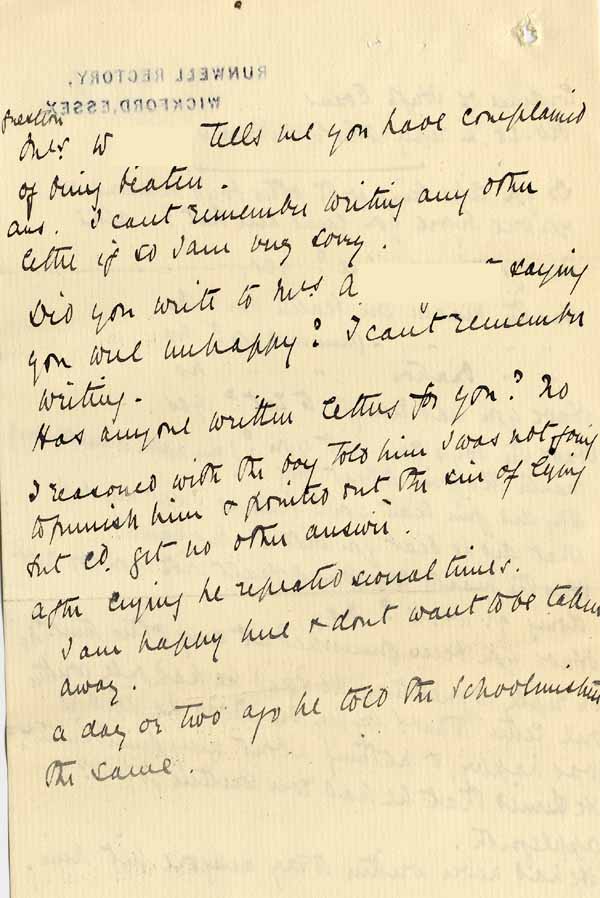 RUNWELL RECTORY,
WICKFORD, ESSEX
Question
Mrs W tells me you have complained
of being beaten.
ans. I can't remember writing any other
letter if so I am very sorry.
Did you write to Mrs A - saying
you were unhappy? I can't remember
writing.
Has anyone written letters for you? No
I reasoned with the boy told him I was not going
to punish him & pointed out the sin of lying
but cd. get no other answer.
after crying he repeated several times.
I am happy here & dont want to be taken
away.
a day or two ago he told the Schoolmistress
the same.